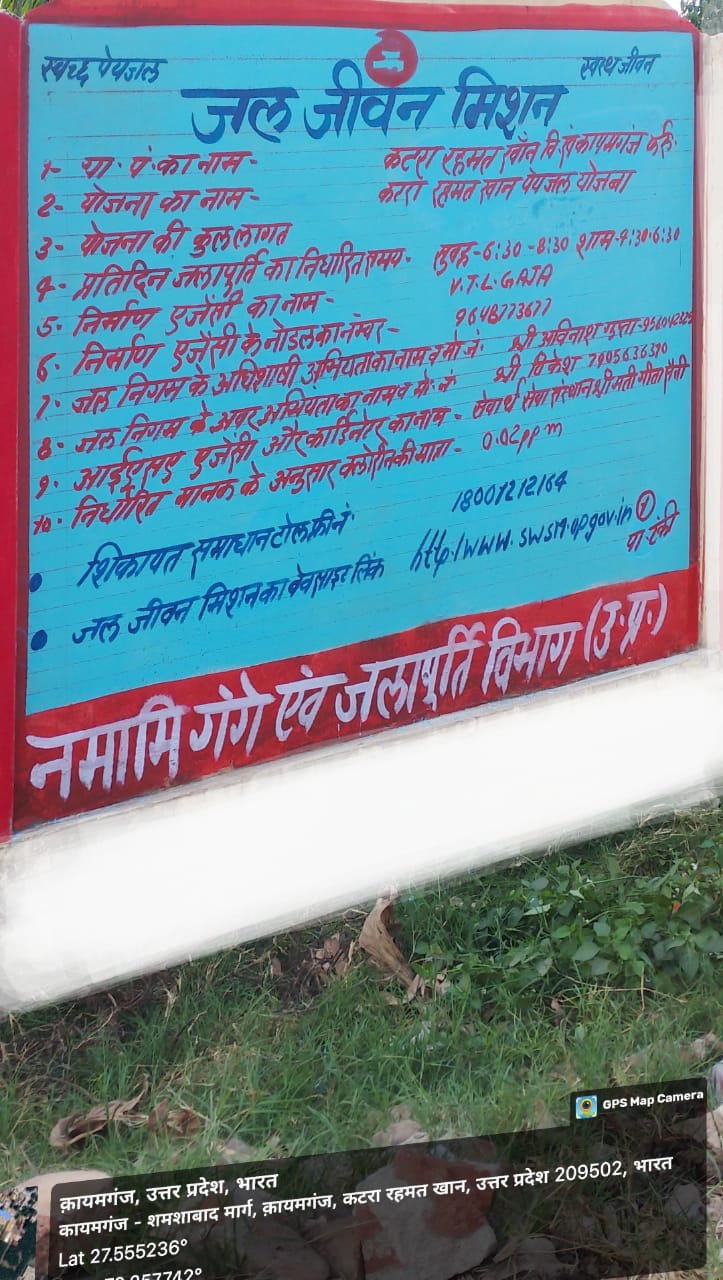 स्वच्छ पेयजल
स्वस्थ जीवन
जल जीवन मिशन
1- ग्रा. पं. का नाम - कटरा रहमत खाँन वि.खं कायमगंज फर्रु.
2- योजना का नाम - कटरा रहमत खान पेयजल योजना
3- योजना की कुल लागत
4- प्रतिदिन जलापूर्ति का निर्धारित समय- सुबह-6:30-8:30 शाम-4:30-6:30
5- निर्माण एजेंसी का नाम - V.T.L.GAJA
6- निर्माण एजेंसी के नोडल का नम्बर - 9648773677
7- जल निगम के अधिशाषी अभियंता का नाम व मो नं: श्री अविनाश गुप्ता-
8- जल निगम के अवर अभियंता का नाम व मो: नं श्री विकेश 7905636390
9- आईएसए एजेंसी और कार्डिनेटर का नाम - सेवार्थ सेवा संस्थान श्रीमती गीता सैनी
10- निर्धारित मानक के अनुसार क्लोरीन की मात्रा - 0.02ppm
• शिकायत समाधान टोल फ्री नं. 18001212164
• जल जीवन मिशन का वेबसाइट लिंक http/www.swsm.upgov.in 1
नमामि गंगे एंव जलापूर्ति विभाग (उ.प्र.)
GPS Map Camera
क़ायमगंज, उत्तर प्रदेश, भारत
कायमगंज - शमशाबाद मार्ग, क़ायमगंज, कटरा रहमत खान, उत्तर प्रदेश 209502, भारत
Lat 27.555236°